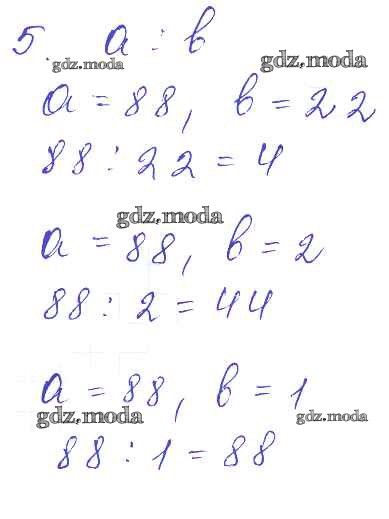 5. a : b
gdz.moda
gdz.moda
a = 88, b = 22
88 : 22 = 4
gdz.moda
a = 88, b = 2
88 : 2 = 44
a = 88, b = 1
gdz.moda
gdz.moda
88 : 1 = 88